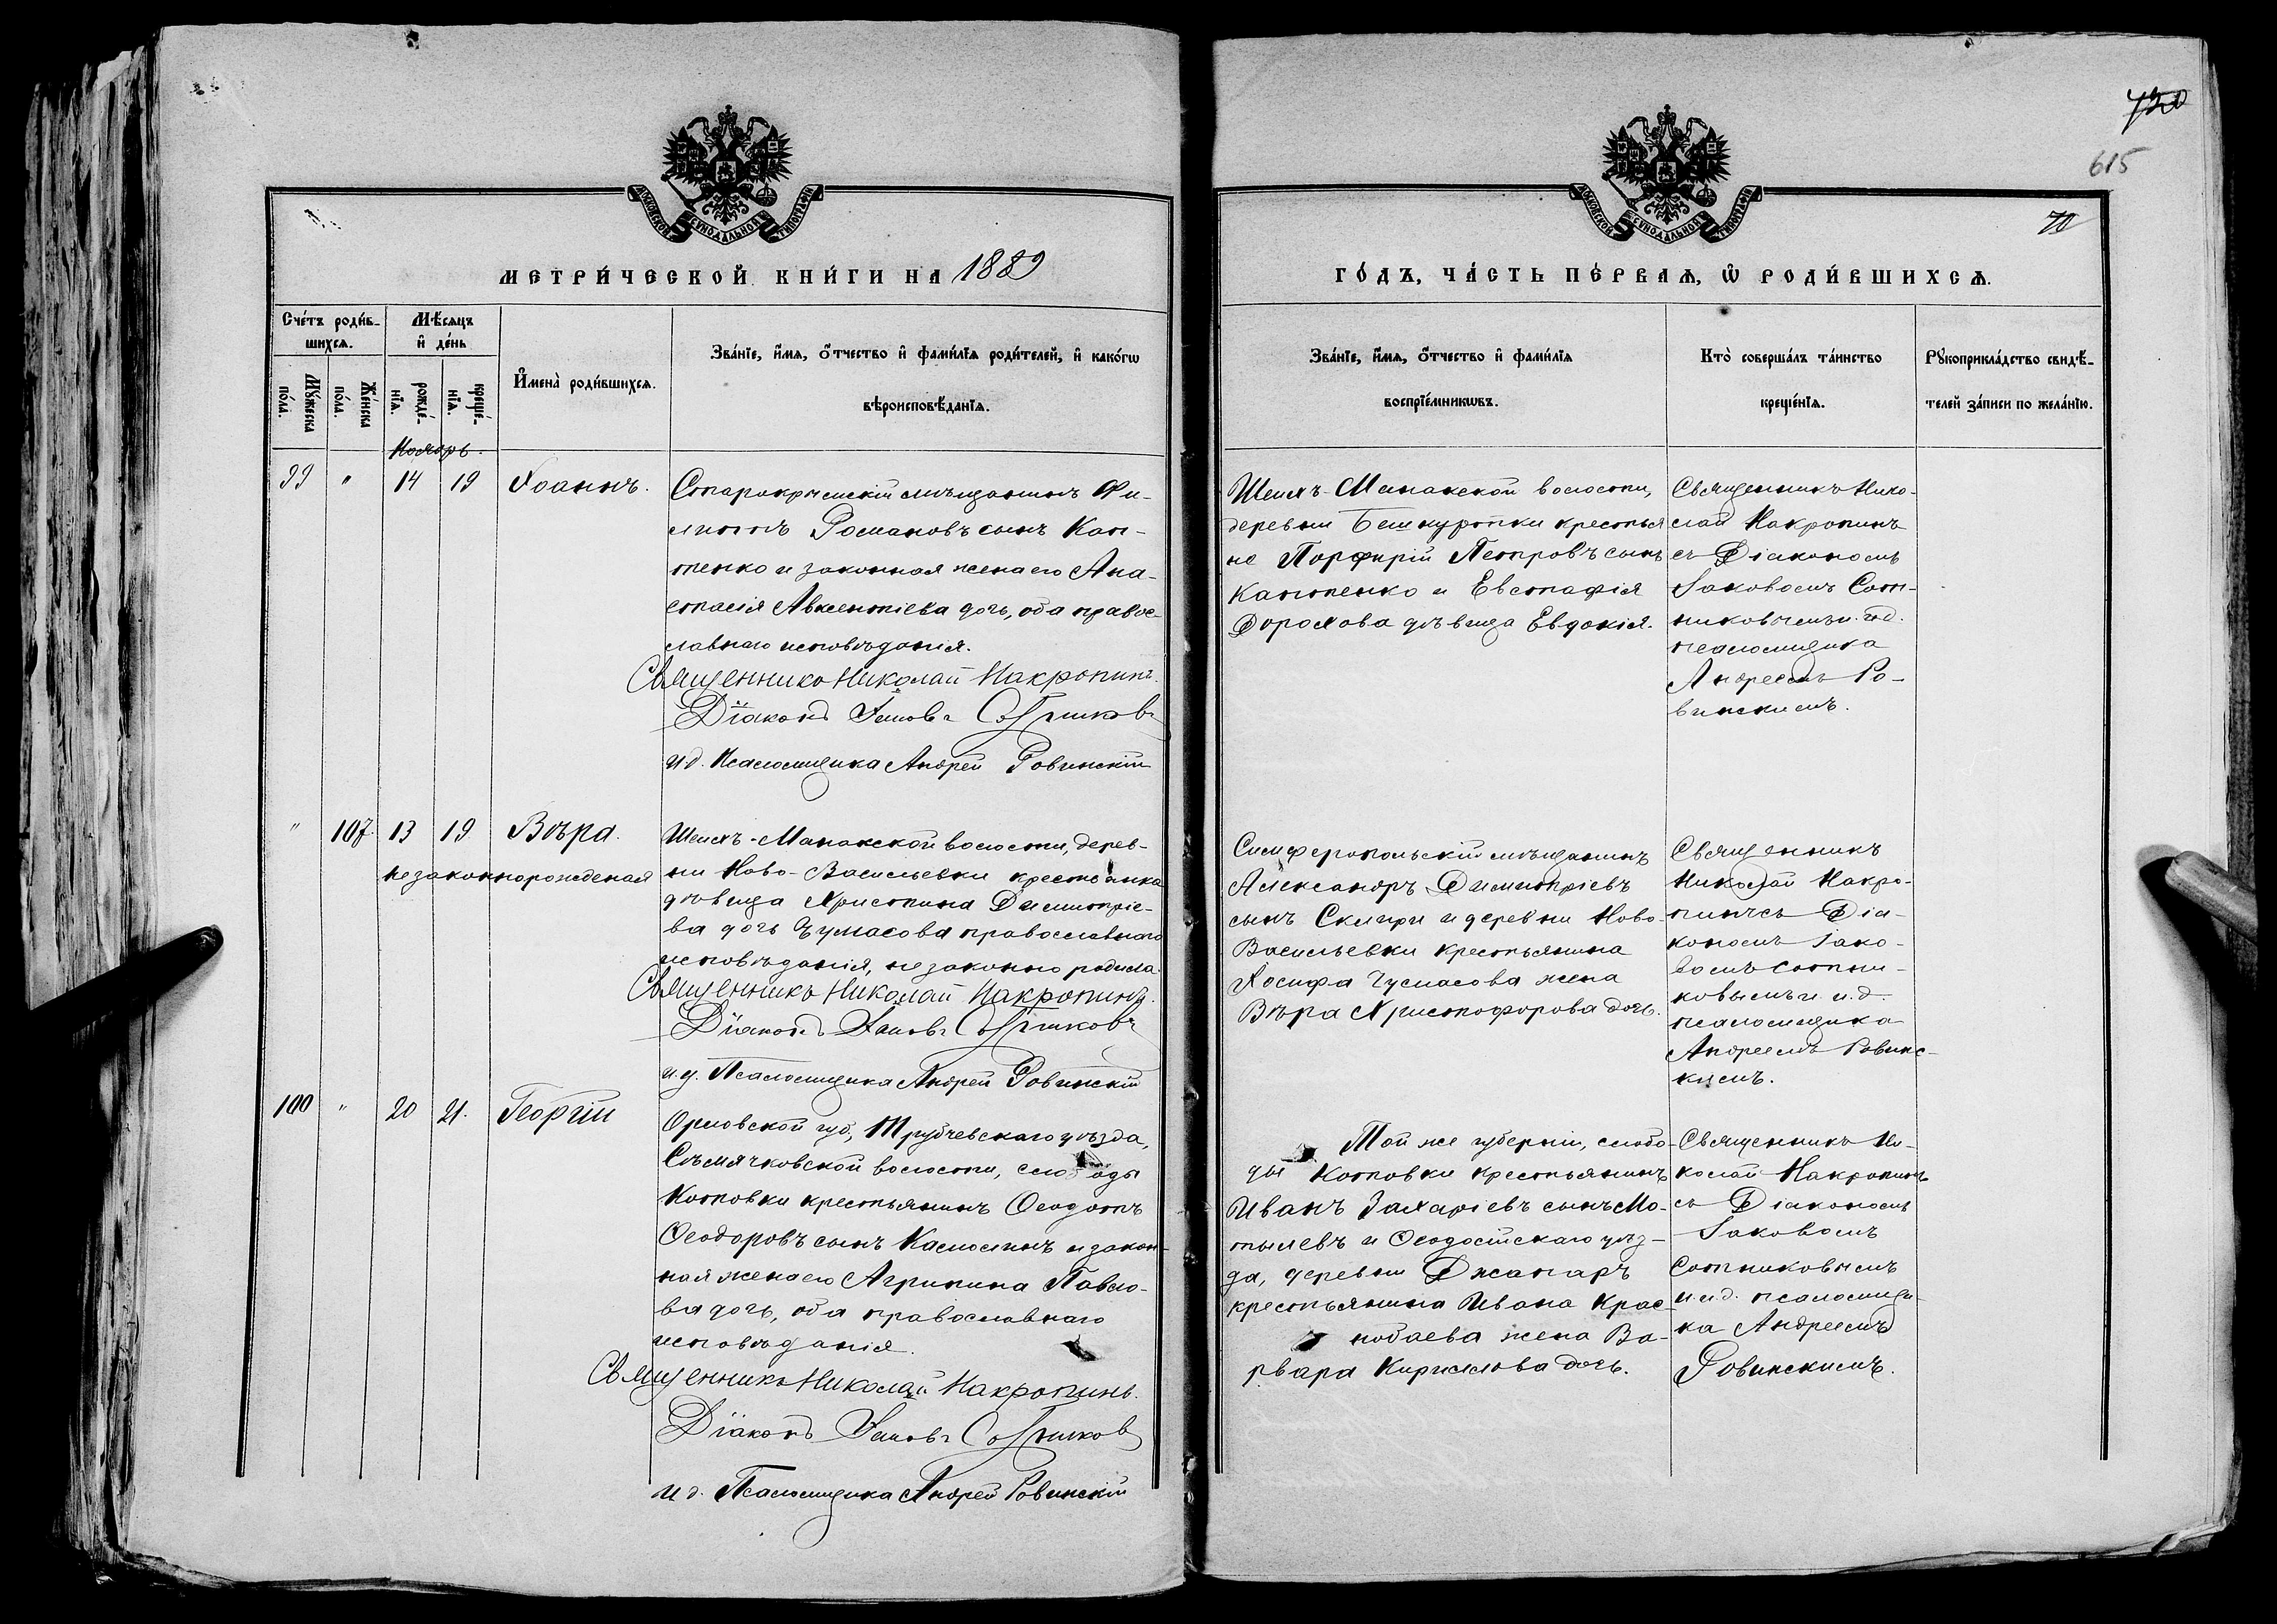 730
615
70
МОСКОВСКОЙ СѴНОДАЛЬНОЙ ТИПОГРАФІИ
МОСКОВСКОЙ СѴНОДАЛЬНОЙ ТИПОГРАФІИ
МЕТРИ́ЧЕСКОЙ КНИ́ГИ НА 1889
ГО́ДЪ, ЧА́СТЬ ПЕ́РВАѦ, Ѡ҆ РОДИ́ВШИХСѦ.
Сче́тъ роди́в-
шихсѧ.
Мꙋ́жеска
по́ла.
Же́нска
по́ла.
Мѣ́сѧцъ
и҆ де́нь
рожде́-
нїѧ.
креще́-
нїѧ.
И҆мена̀ роди́вшихсѧ.
Зва́нїе, и҆́мѧ, ѻ҆́тчество и҆ фами́лїѧ роди́телей, и҆ како́гѡ
вѣроисповѣ́данїѧ.
Зва́нїе, и҆́мѧ, ѻ҆́тчество и҆ фами́лїѧ
воспрїе́мникѡвъ.
Кто̀ соверша́лъ та́инство
креще́нїѧ.
Рꙋкоприкла́дство свидѣ́-
телей за́писи по жела́нїю.
Ноябрь.
99 " 14 19 Іоаннъ.
Старокрымскій мѣщанинъ Фи-
липпъ Романовъ сынъ Кап-
тенко и законная жена его Ана-
стасія Авксентіева дочь, оба правос-
лавнаго исповѣданія.
Священникъ Николай Макропинъ.
Діаконъ Іаковъ Сотниковъ
И.д. Псаломщика Андрей Ровинскій
Шейхъ-Манакской волости,
деревни Бешкуртки крестья
не Порфирій Петровъ сынъ
Каптенко и Евстафія
Дорохова дѣвица Евдокія.
Священникъ Нико-
лай Макропинъ
съ Діакономъ
Іаковомъ Сот-
никовымъ и. и.д.
псаломщика
Андреемъ Ро-
винскимъ.
" 107. 13 19 Вѣра.
незаконнорожденая
Шейхъ-Манакской волости, дерев-
ни Ново-Васильевки крестьянка
дѣвица Христина Димитріе-
ва дочь Чумасова православнаго
исповѣданія, незаконно родила.
Священникъ Николай Макропинъ.
Діаконъ Іаковъ Сотниковъ
и.д. Псаломщика Андрей Ровинскій
Симферопольскій мѣщанинъ
Александръ Димитріевъ
сынъ Скипри и деревни Ново-
Васильевки крестьянина
Іосифа Чумасова жена
Вѣра Христофорова дочь.
Священникъ
Николай Макро-
пинъ съ Діа-
кономъ Іако-
вомъ Сотни-
ковымъ и и.д.
псаломщика
Андреемъ Ровинс-
кимъ.
100 " 20 21. Георгій
Орловской губ., Трубчевскаго уѣзда,
Сѣмячковской волости, слободы
Котовки крестьянинъ Ѳеодотъ
Ѳеодоровъ сынъ Камолинъ и закон-
ная жена его Агрипина Павло-
ва дочь, оба православнаго
исповѣданія.
Священникъ Николай Макропинъ.
Діаконъ Іаковъ Сотниковъ
И.д. Псаломщика Андрей Ровинскій
Той же губерніи, слобо-
ды Котовки крестьянинъ
Иванъ Захаріевъ сынъ Мо-
тылевъ и Ѳеодосійскаго уѣз-
да, деревни Джапаръ
крестьянина Ивана Крас-
нобаева жена Ва-
рвара Кириллова дочь.
Священникъ Ни-
колай Макропинъ
съ Діакономъ
Іаковомъ
Сотниковымъ
и и.д. псаломщи-
ка Андреемъ
Ровинскимъ.